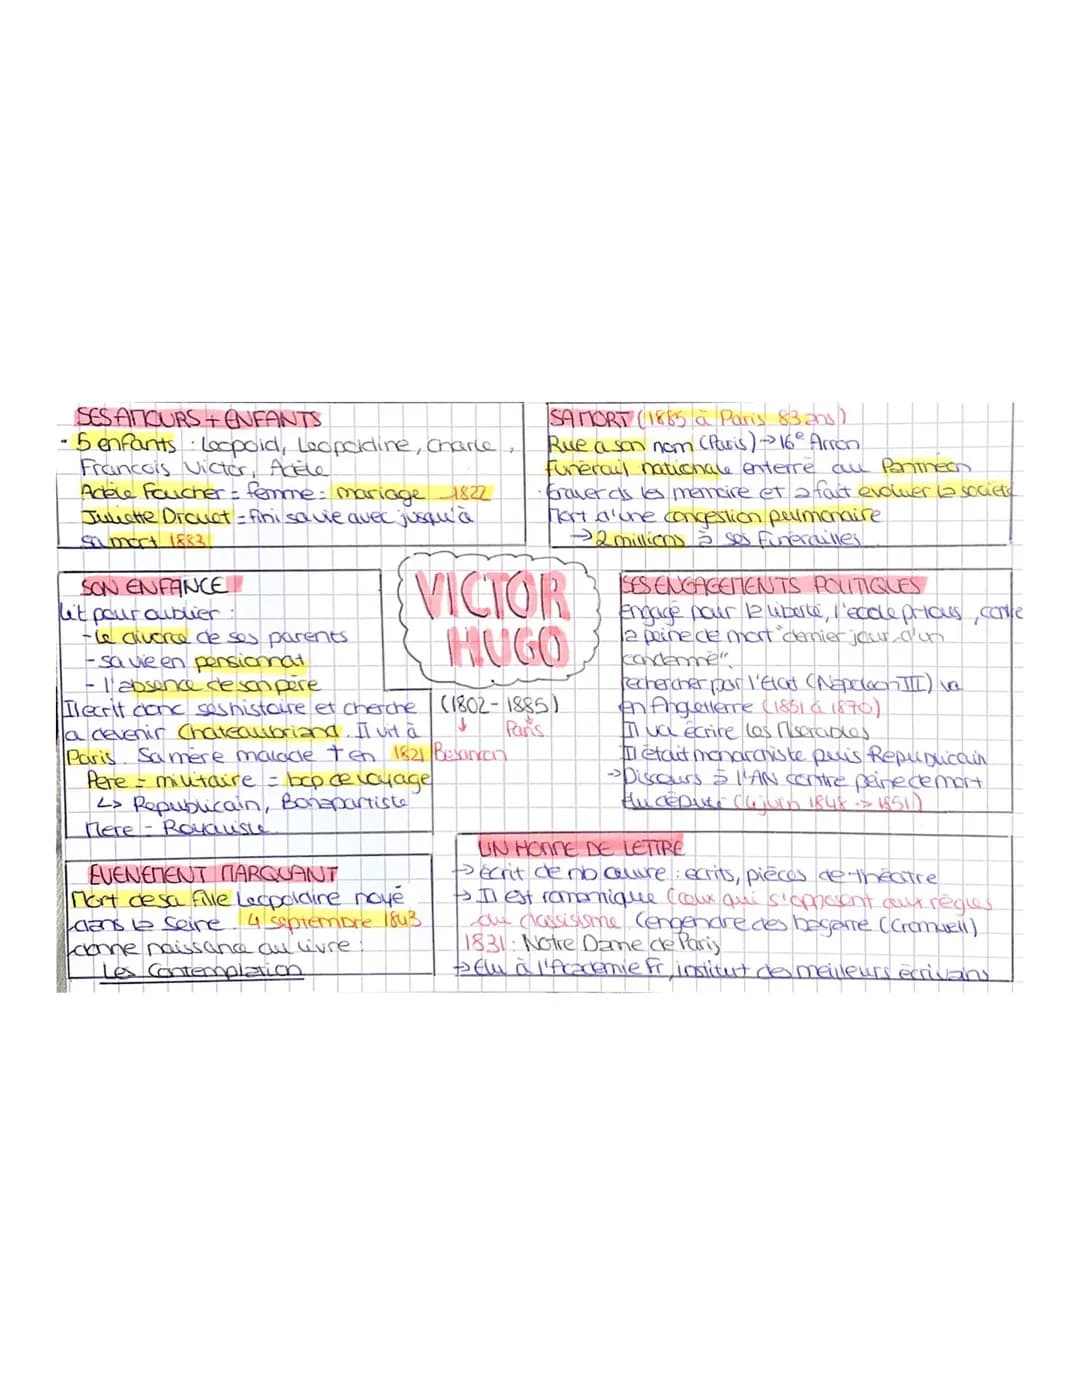 SES AMOURS + ENFANTS
- 5 enfants : Leopold, Leopoldine, Charle,
Francois Victor, Adèle
Adèle Foucher = femme = mariage 1822
Juliette Drouet = fini sa vie avec jusqu'à
sa mort 1883
SA MORT (1885 à Paris 83 ans)
Rue a son nom (Paris) → 16e Arron
funérail nationale enterré au Panthéon
Graver ds les mémoire et a fait evoluer la societé
Mort d'une congestion pulmonaire
→ 2 millions à ses funérailles
SON ENFANCE
Lit pour oublier :
- Le divorce de ses parents
- sa vie en pensionnat
- l'absence de son père
Il ecrit donc ses histoire et cherche
a devenir Chateaubriand. Il vit à
Paris. Sa mère malade † en 1821
Père = militaire = bcp de voyage
↳ Republicain, Bonapartiste
Mère - Royaliste
VICTOR
HUGO
(1802-1885)
↓ Paris
Besancon
SES ENGAGEMENTS POLITIQUES
Engagé pour la liberté, l'ecole , contre
la peine de mort "dernier jour d'un
condamné".
rechercher par l'Etat (Napoléon III) va
en Angleterre (1851 à 1870)
Il va écrire Les Miserables
Il était monarchiste puis Republicain
→ Discours à l'AN contre peine de mort
élu député (4 juin 1848 -> 1851)
EVENEMENT MARQUANT
Mort de sa fille Leopoldine noyé
dans la Seine. 4 septembre 1843
donne naissance au livre :
Les Contemplation
UN HOMME DE LETTRE
→ écrit de nb œuvre : ecrits, pièces de théatre
→ Il est romantique (ceux qui s'opposent aux règles
du classisisme (engendre des bagarre (Cromwell)
1831 : Notre Dame de Paris
→ Elu à l'Academie Fr, institut des meilleurs écrivains